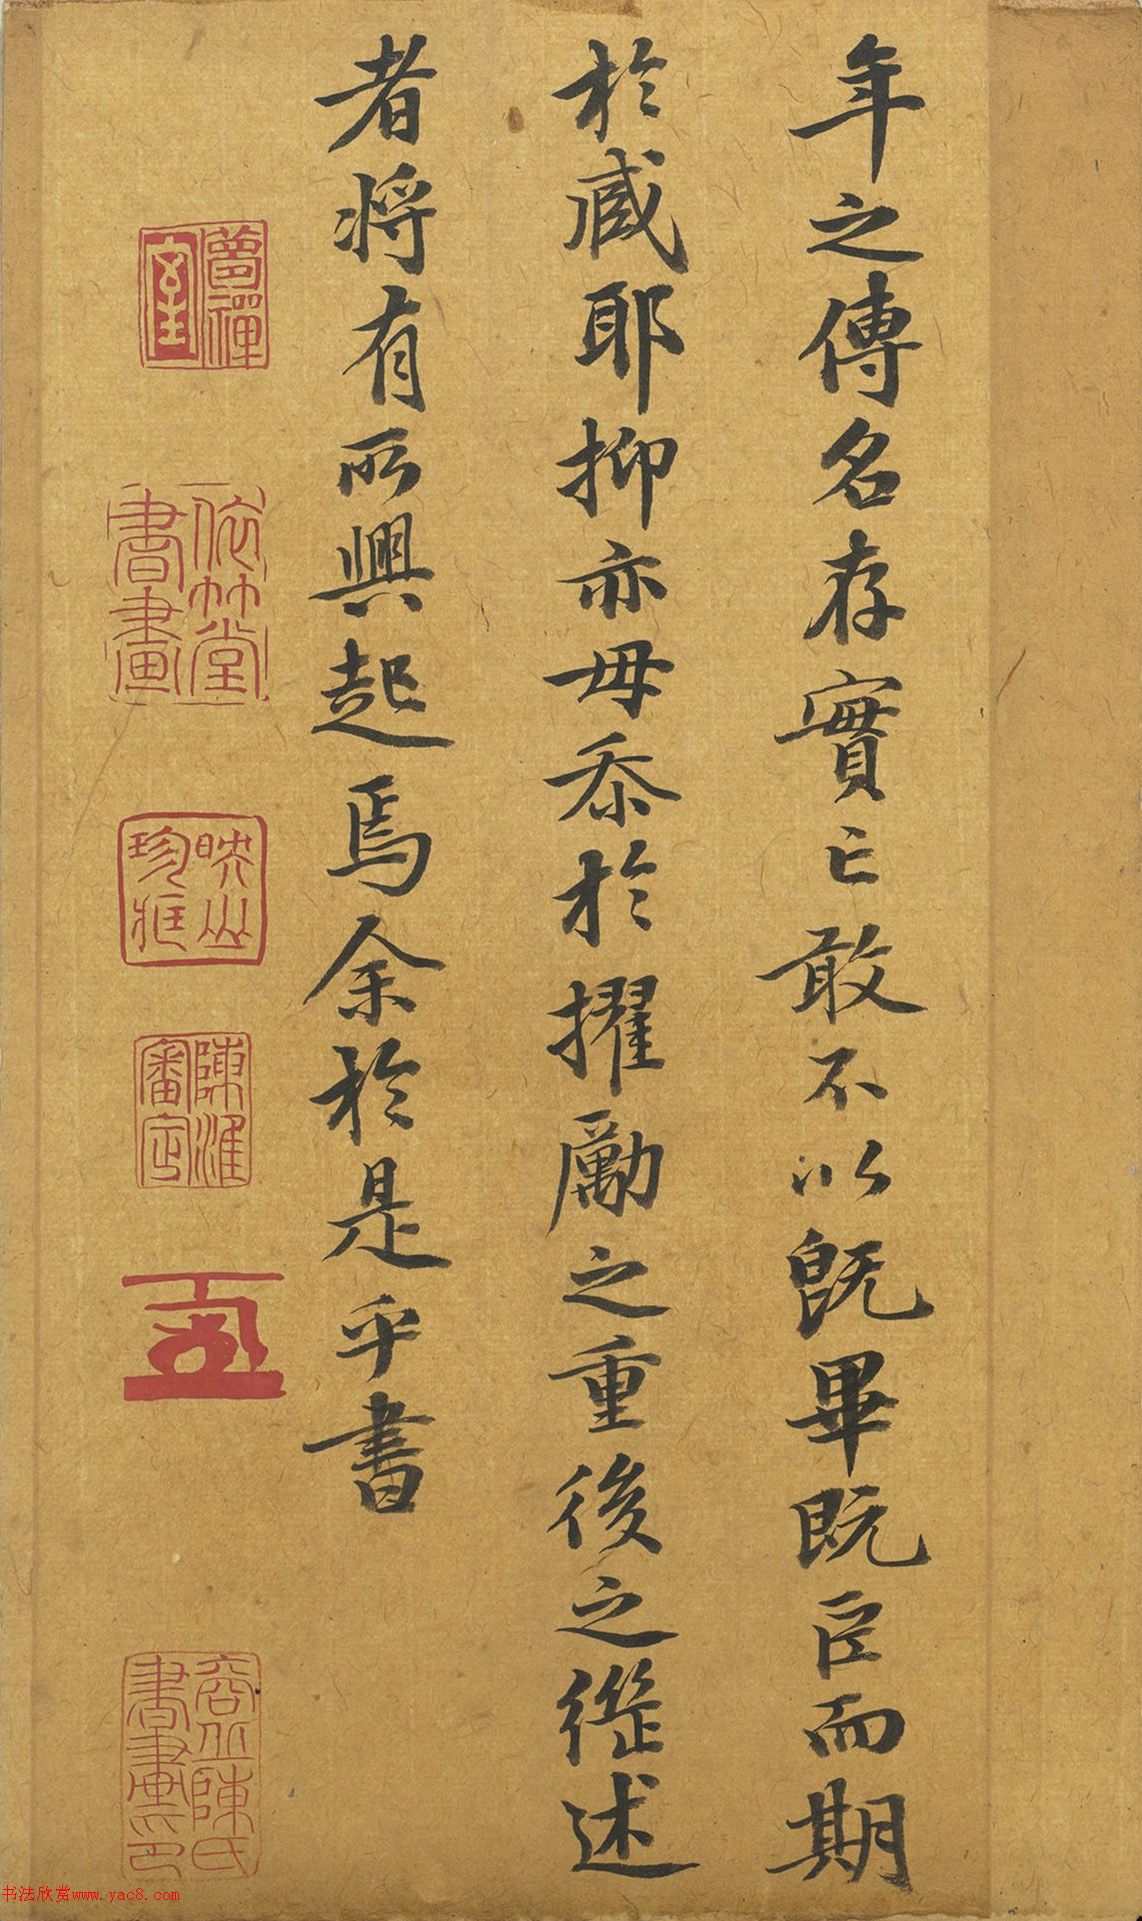 年之傳名存實亡敢不以既畢既臣而期
於臧耶抑亦毋忝於擢勵之重後之從述
者將有所興起焉余於是乎書
夢禪室
依竹堂書畫
映山珍藏
陳淮審定
商丘陳氏書畫印
书法欣赏www.yac8.com